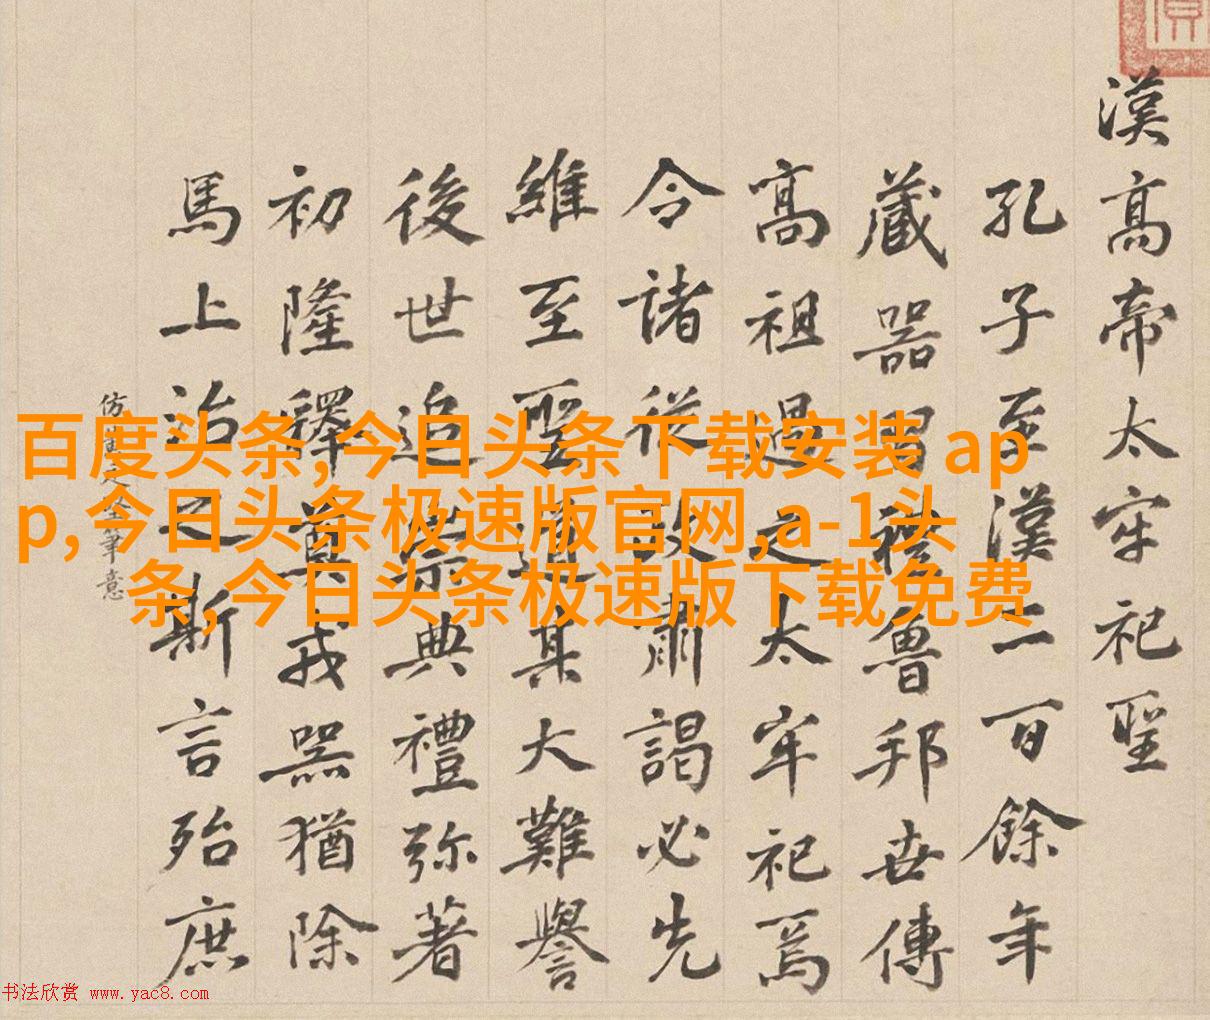 漢高帝太牢祀聖
孔子至漢二百餘年
藏器習禮魯邦世傳
髙祖過之太牢祀焉
令諸從政肅謁必先
維至聖道其大難譽
後世追崇典禮弥著
初隆釋奠戎器猶除
馬上治之斯言殆庶
仿筆意
百度头条,今日头条下载安装 ap
p,今日头条极速版官网,a-1头
条,今日头条极速版下载免费
书法欣赏 www.yac8.com